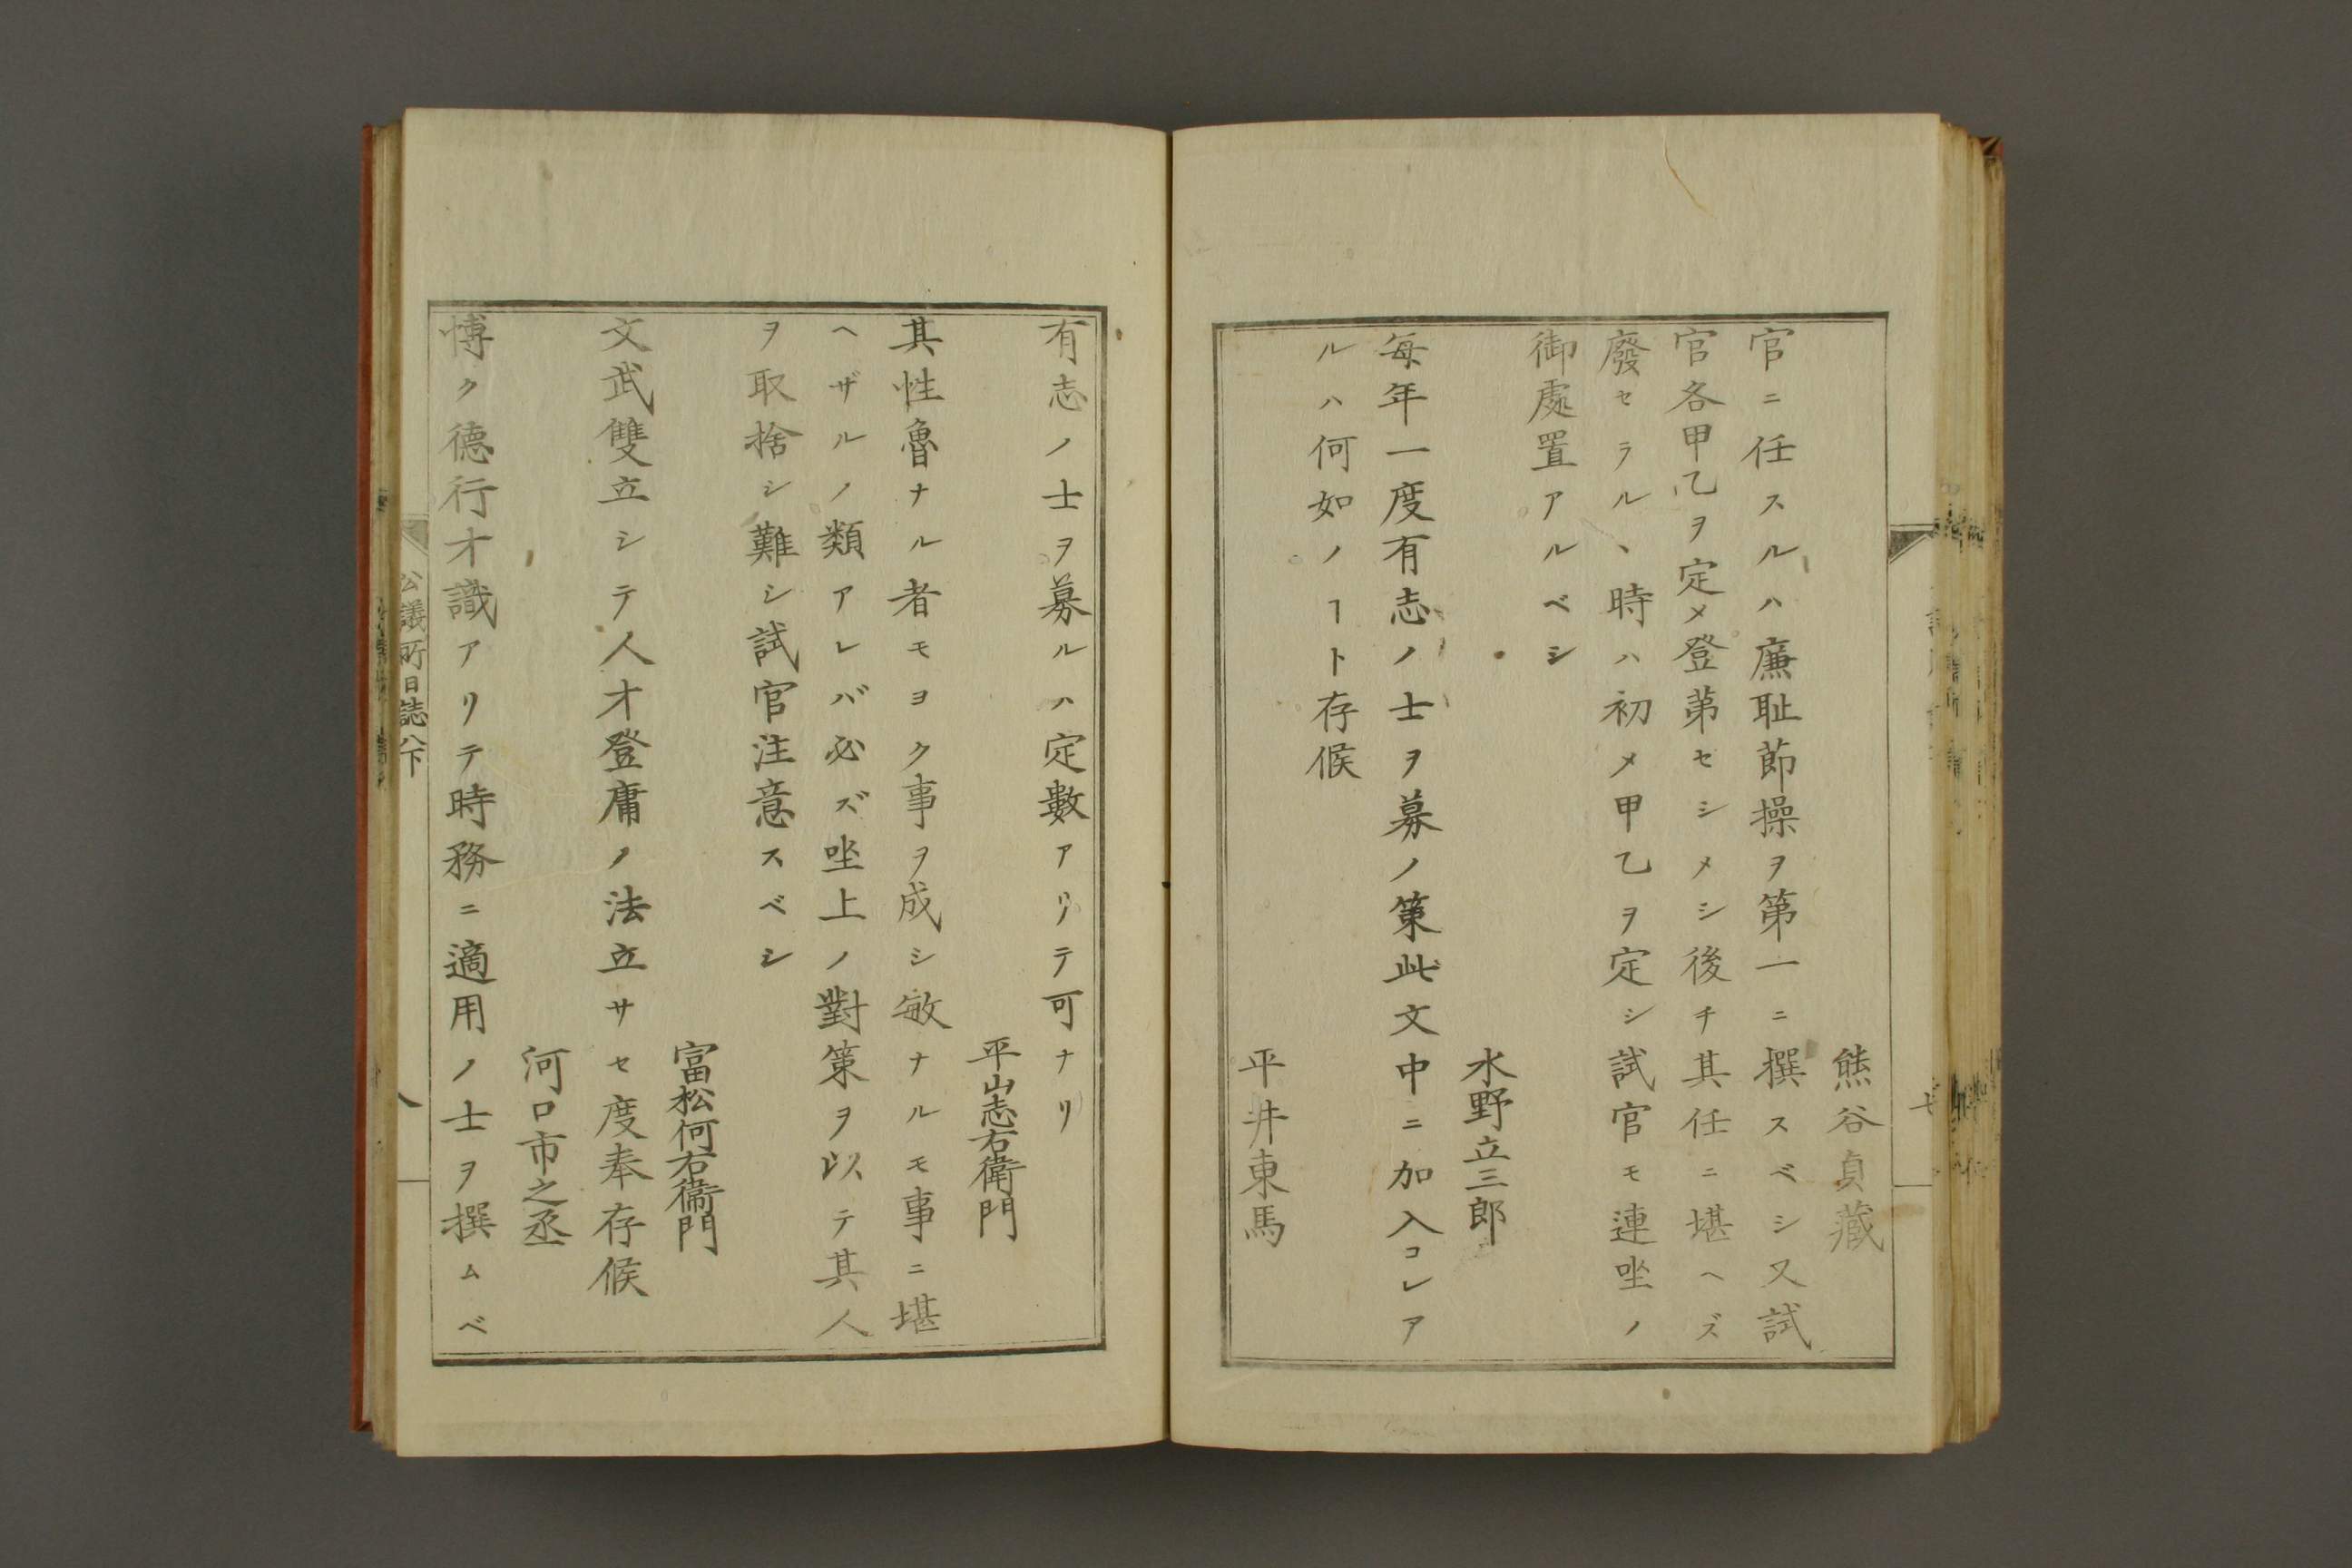 熊谷貞藏
官ニ任スルハ廉耻節操ヲ第一ニ撰スベシ又試
官各甲乙ヲ定メ登第セシメシ後チ其任ニ堪ヘズ
廢セラル、時ハ初メ甲乙ヲ定シ試官モ連坐ノ
御處置アルベシ
水野立三郎
毎年一度有志ノ士ヲ募ノ策此文中ニ加入コレア
ルハ何如ノヿト存候
平井東馬
有志ノ士ヲ募ルハ定數アリテ可ナリ
平山志右衛門
其性魯ナル者モヨク事ヲ成シ敏ナルモ事ニ堪
ヘザルノ類アレバ必ズ坐上ノ對策ヲ以テ其人
ヲ取捨シ難シ試官注意スベシ
富松何右衛門
文武雙立シテ人才登庸ノ法立サセ度奉存候
河口市之丞
博ク德行才識アリテ時務ニ適用ノ士ヲ撰ムベ
公議所日誌八下
八